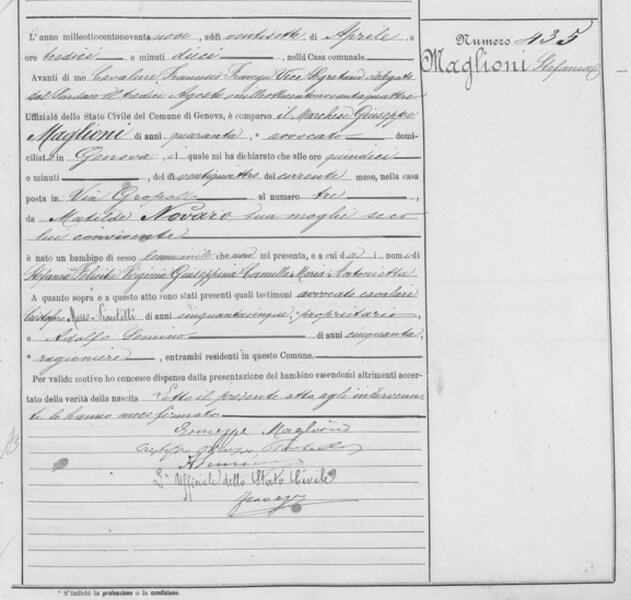 Numero 435
Maglioni Stefania
L'anno millottocentonovantanove, addì ventisette di Aprile, a
ore tredici e minuti dieci, nella Casa comunale.
Avanti di me Cavaliere Francesco Vice Segretario delegato
dal Sindaco il tredici Agosto milleottocentonovantaquattro
Uffiziale dello Stato Civile del Comune di Genova, è comparso il Marchese Giuseppe
Maglioni di anni quaranta, * avvocato domi-
ciliato in Genova, il quale mi ha dichiarato che alle ore quindici
e minuti, del dì ventiquattro del corrente mese, nella casa
posta in Via Gropallo al numero tre,
da Matilde Novaro sua moglie seco
lui convivente
è nato un bambino di sesso femminile che non mi presenta, e a cui dà i nomi di
Stefania Felicita Virginia Giuseppina Camilla Maria Antonietta
A quanto sopra e a questo atto sono stati presenti quali testimoni avvocato cavaliere
Musso di anni cinquantacinque, proprietario
e Adolfo Semino di anni cinquanta
* ragioniere, entrambi residenti in questo Comune.
Per valido motivo ho concesso dispensa dalla presentazione del bambino essendomi altrimenti accer-
tato della verità della nascita Letto il presente atto agli intervenu-
ti lo hanno meco firmato
Giuseppe Maglioni
A Semino
L'Ufficiale dello Stato Civile
* S'indichi la professione o la condizione.